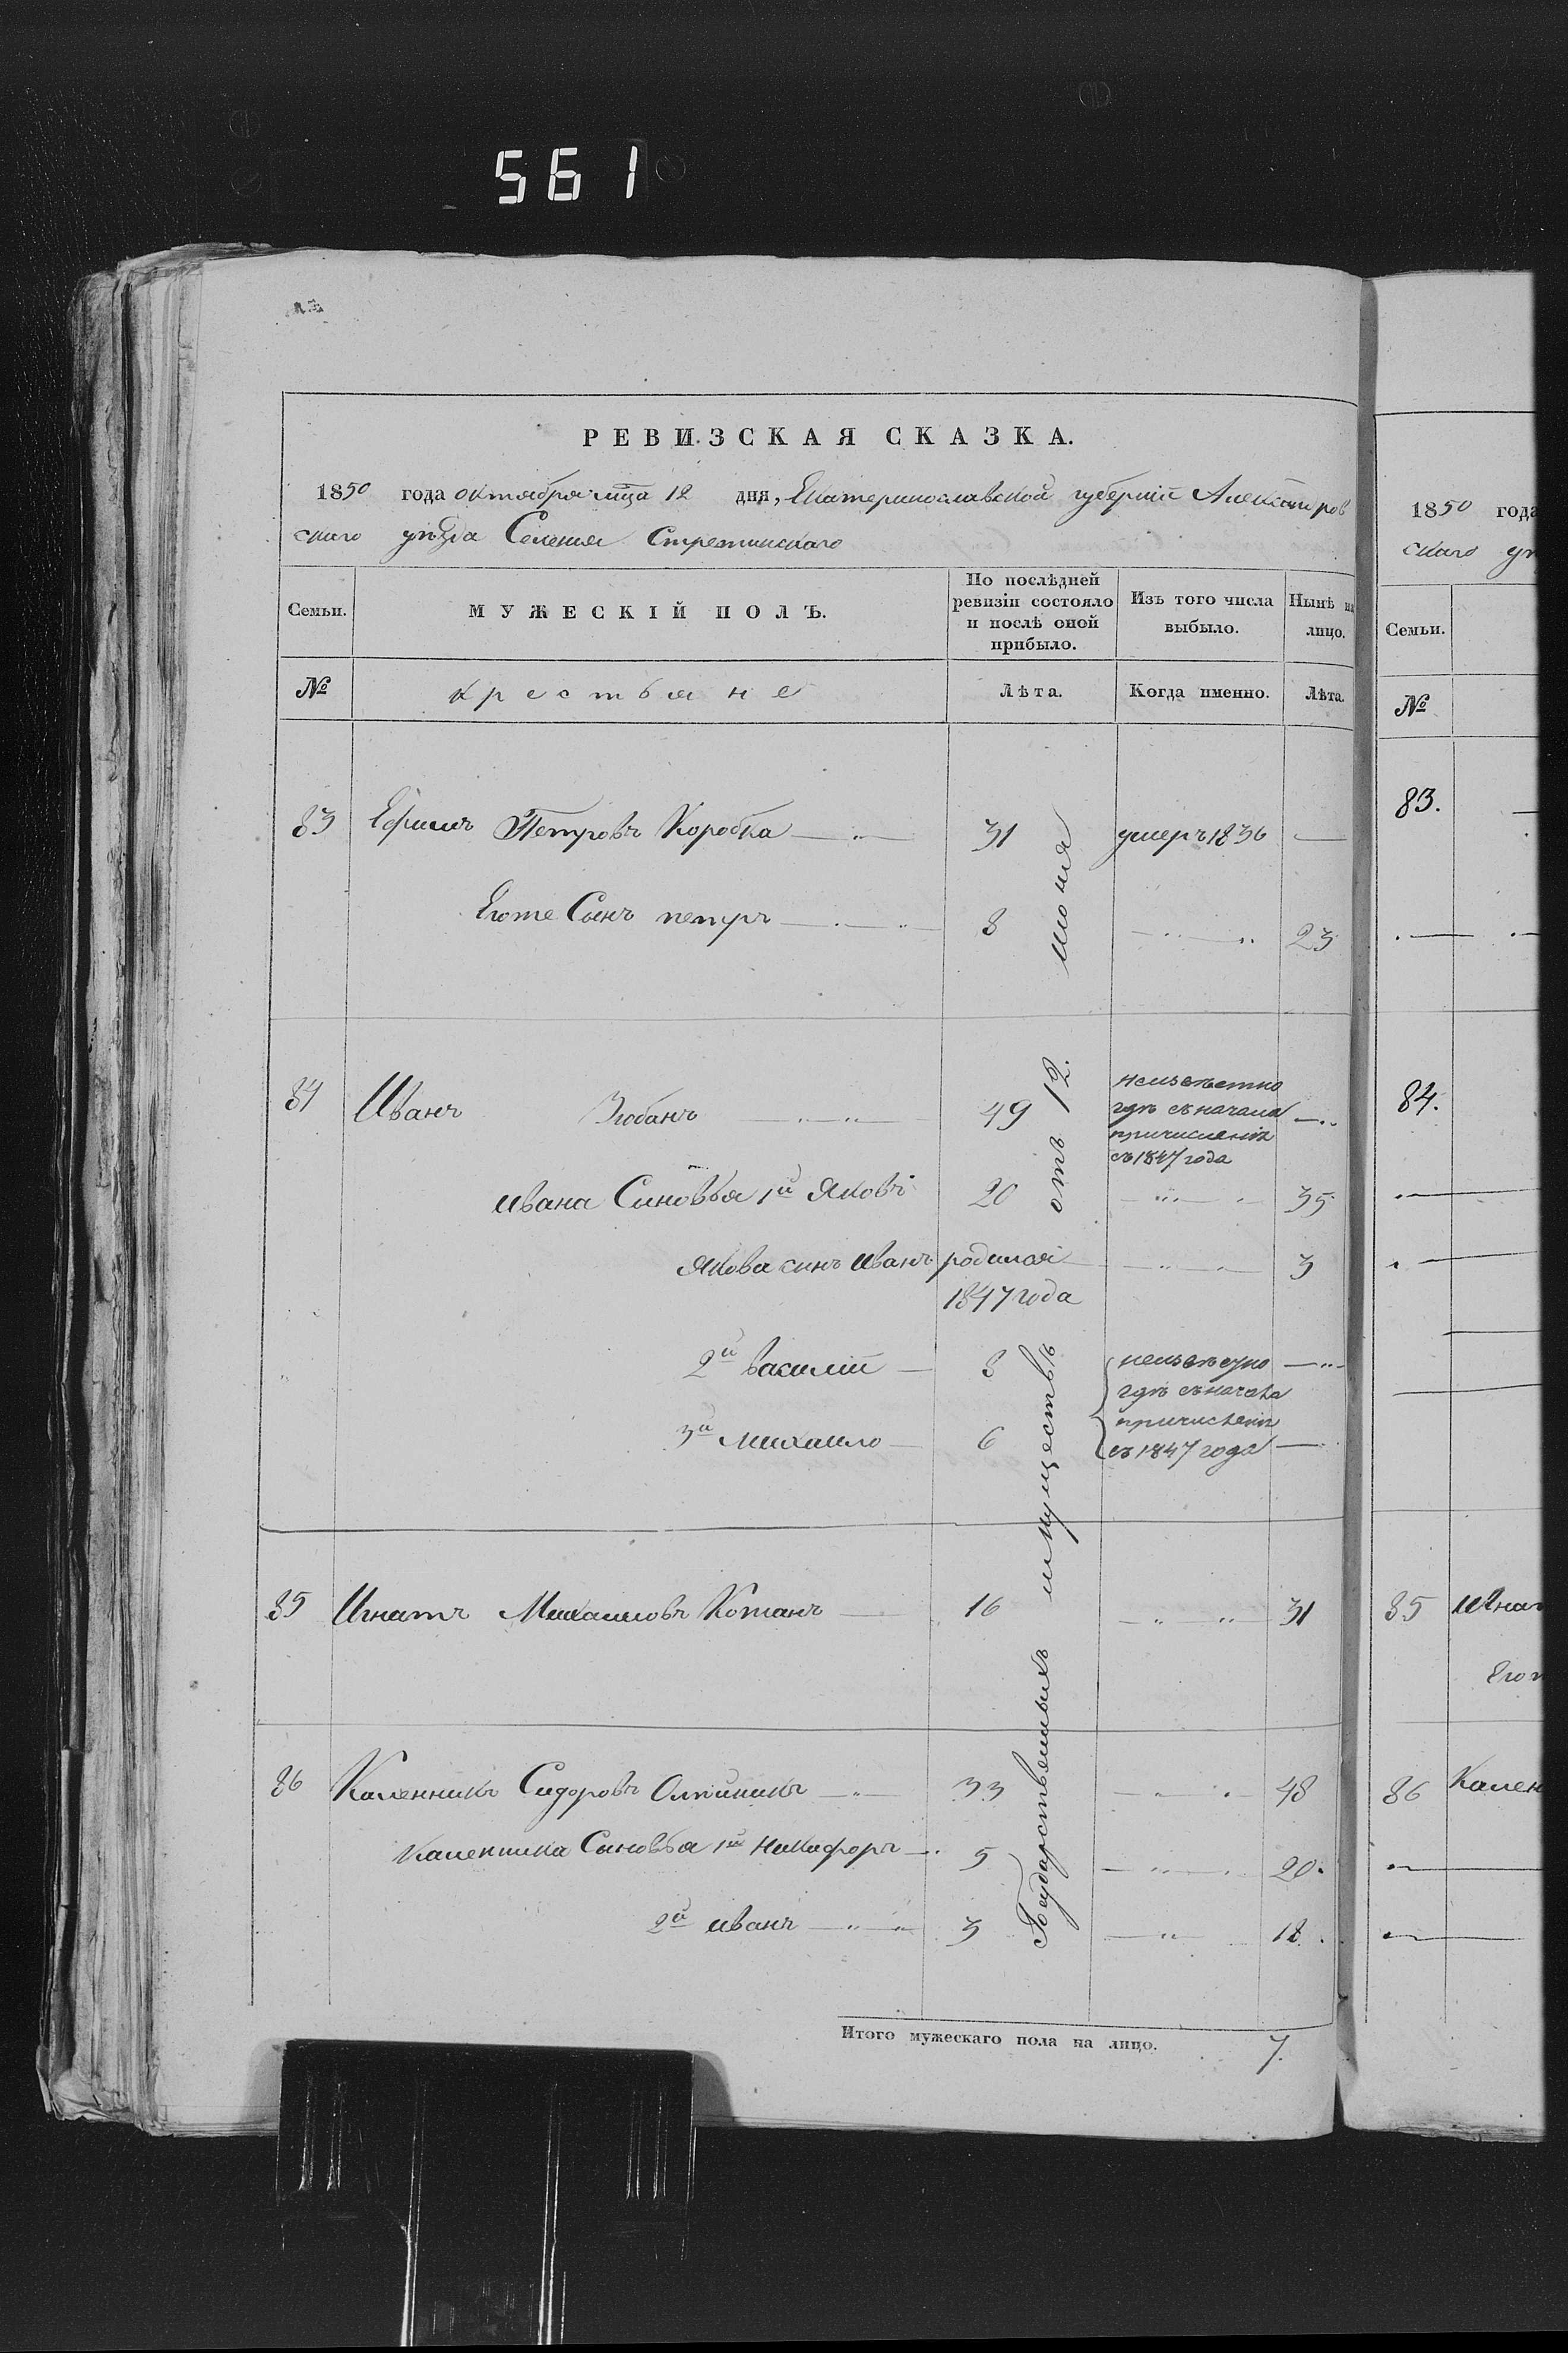 561
РЕВИЗСКАЯ СКАЗКА.
1850 года октября мца 12 дня, Екатеринославской губернiи Александров
скаго уѣзда Селения Стретинскаго
Семьи.
МУЖЕСКІЙ ПОЛЪ.
По послѣдней ревизіи состояло и послѣ оной прибыло.
Изъ того числа выбыло.
Нынѣ на лицо.
№
крестьяне
Лѣта.
Когда именно.
Лѣта.
83 Ефимъ Петровъ Коробка 31 умеръ 1836
Егоже Сынъ петръ 8 23
84 Иванъ Зюбанъ 49 неизвѣстно
гдѣ съ начала
причисленія
съ 1847 года
Ивана Сыновья 1й Яковъ 20 35
Якова синъ Иванъ родился 3
1847 года
2й василiй 8 неизвѣстно
гдѣ съ начала
3й Михаило 6 причисленія
съ 1847 года
85 Игнатъ Михаиловъ Котанъ 16 31
86 Каленникъ Сидоровъ Олiйникъ 33 48
Каленника Сыновья 1й Никифоръ 5 20.
2й иванъ 3 18.
Государственныхъ имуществъ отъ 12. июня
Итого мужескаго пола на лицо. 7.
1850 года
скаго
Семьи.
№
83.
84.
85 Игнат
Егож
86 Кален